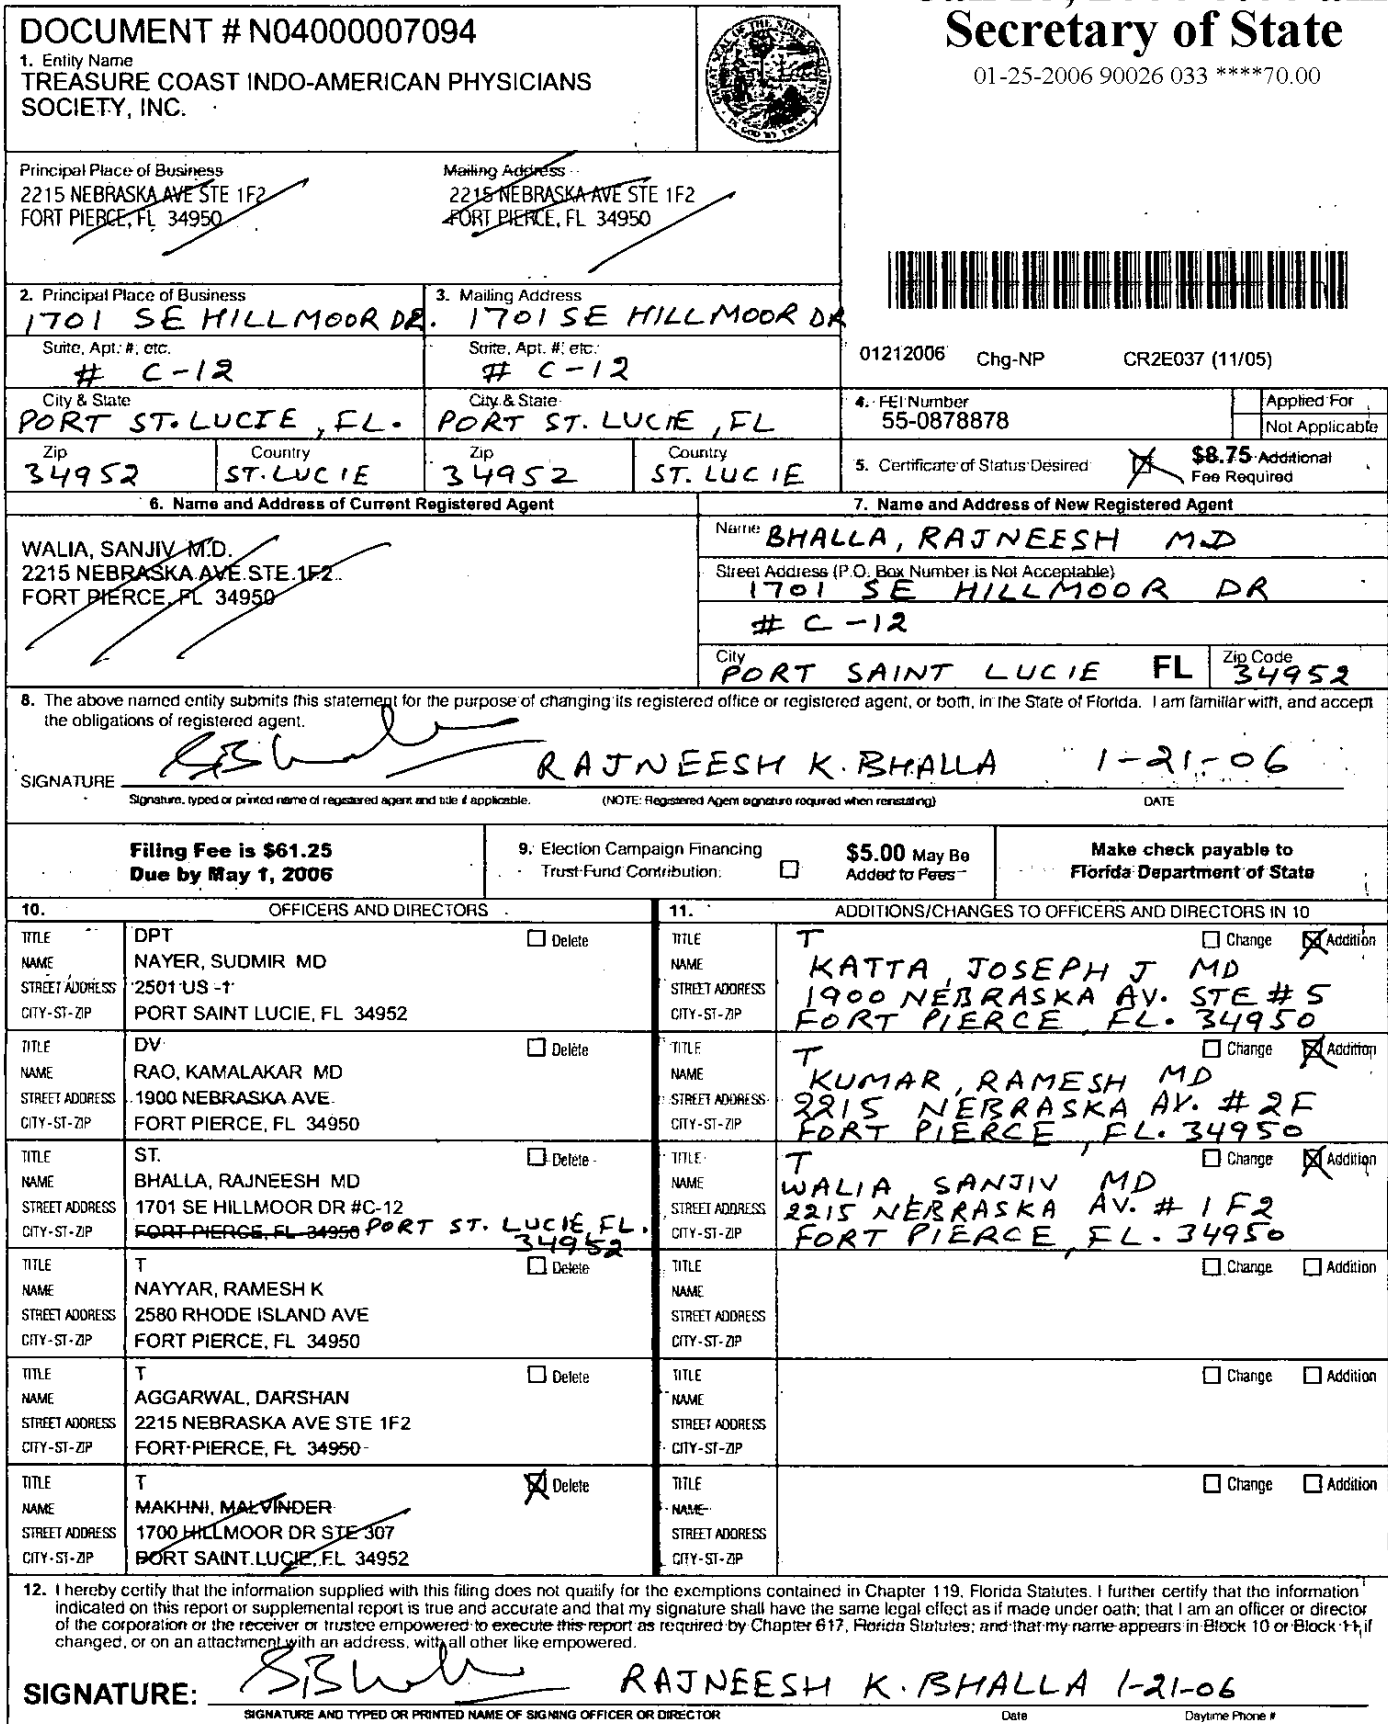 DOCUMENT # N04000007094
1. Entity Name
TREASURE COAST INDO-AMERICAN PHYSICIANS
SOCIETY, INC.
Secretary of State
01-25-2006 90026 033 ****70.00
Principal Place of Business
2215 NEBRASKA AVE STE 1F2
FORT PIERCE, FL 34950
Mailing Address
2215 NEBRASKA AVE STE 1F2
FORT PIERCE, FL 34950
2. Principal Place of Business
1701 SE HILLMOOR DR.
3. Mailing Address
1701 SE HILLMOOR DR
Suite, Apt. #, etc.
# C-12
Suite, Apt. #, etc.
# C-12
01212006 Chg-NP CR2E037 (11/05)
City & State
PORT ST. LUCIE, FL.
City & State
PORT ST. LUCIE, FL
4. FEI Number
55-0878878
Applied For
Not Applicable
Zip
34952
Country
ST. LUCIE
Zip
34952
Country
ST. LUCIE
5. Certificate of Status Desired
$8.75 Additional
Fee Required
6. Name and Address of Current Registered Agent
WALIA, SANJIV M.D.
2215 NEBRASKA AVE STE 1F2
FORT PIERCE, FL 34950
7. Name and Address of New Registered Agent
Name BHALLA, RAJNEESH MD
Street Address (P.O. Box Number is Not Acceptable)
1701 SE HILLMOOR DR
# C-12
City PORT SAINT LUCIE FL Zip Code 34952
8. The above named entity submits this statement for the purpose of changing its registered office or registered agent, or both, in the State of Florida. I am familiar with, and accept
the obligations of registered agent.
SIGNATURE RAJNEESH K. BHALLA 1-21-06
Signature, typed or printed name of registered agent and title if applicable. (NOTE: Registered Agent signature required when reinstating) DATE
Filing Fee is $61.25
Due by May 1, 2006
9. Election Campaign Financing
Trust Fund Contribution.
$5.00 May Be
Added to Fees
Make check payable to
Florida Department of State
10. OFFICERS AND DIRECTORS
TITLE DPT Delete
NAME NAYER, SUDMIR MD
STREET ADDRESS 2501 US -1
CITY-ST-ZIP PORT SAINT LUCIE, FL 34952
TITLE DV Delete
NAME RAO, KAMALAKAR MD
STREET ADDRESS 1900 NEBRASKA AVE
CITY-ST-ZIP FORT PIERCE, FL 34950
TITLE ST. Delete
NAME BHALLA, RAJNEESH MD
STREET ADDRESS 1701 SE HILLMOOR DR #C-12
CITY-ST-ZIP FORT PIERCE, FL 34950 PORT ST. LUCIE, FL.
34952
TITLE T Delete
NAME NAYYAR, RAMESH K
STREET ADDRESS 2580 RHODE ISLAND AVE
CITY-ST-ZIP FORT PIERCE, FL 34950
TITLE T Delete
NAME AGGARWAL, DARSHAN
STREET ADDRESS 2215 NEBRASKA AVE STE 1F2
CITY-ST-ZIP FORT PIERCE, FL 34950
TITLE T Delete
NAME MAKHNI, MALVINDER
STREET ADDRESS 1700 HILLMOOR DR STE 307
CITY-ST-ZIP PORT SAINT LUCIE, FL 34952
11. ADDITIONS/CHANGES TO OFFICERS AND DIRECTORS IN 10
TITLE T Change Addition
NAME KATTA, JOSEPH J MD
STREET ADDRESS 1900 NEBRASKA AV. STE # 5
CITY-ST-ZIP FORT PIERCE, FL. 34950
TITLE T Change Addition
NAME KUMAR, RAMESH MD
STREET ADDRESS 2215 NEBRASKA AV. # 2F
CITY-ST-ZIP FORT PIERCE, FL. 34950
TITLE T Change Addition
NAME WALIA, SANJIV MD
STREET ADDRESS 2215 NEBRASKA AV. # 1F2
CITY-ST-ZIP FORT PIERCE, FL. 34950
TITLE Change Addition
NAME
STREET ADDRESS
CITY-ST-ZIP
TITLE Change Addition
NAME
STREET ADDRESS
CITY-ST-ZIP
TITLE Change Addition
NAME
STREET ADDRESS
CITY-ST-ZIP
12. I hereby certify that the information supplied with this filing does not qualify for the exemptions contained in Chapter 119, Florida Statutes. I further certify that the information
indicated on this report or supplemental report is true and accurate and that my signature shall have the same legal effect as if made under oath; that I am an officer or director
of the corporation or the receiver or trustee empowered to execute this report as required by Chapter 617, Florida Statutes; and that my name appears in Block 10 or Block 11 if
changed, or on an attachment with an address, with all other like empowered.
SIGNATURE: RAJNEESH K. BHALLA 1-21-06
SIGNATURE AND TYPED OR PRINTED NAME OF SIGNING OFFICER OR DIRECTOR Date Daytime Phone #